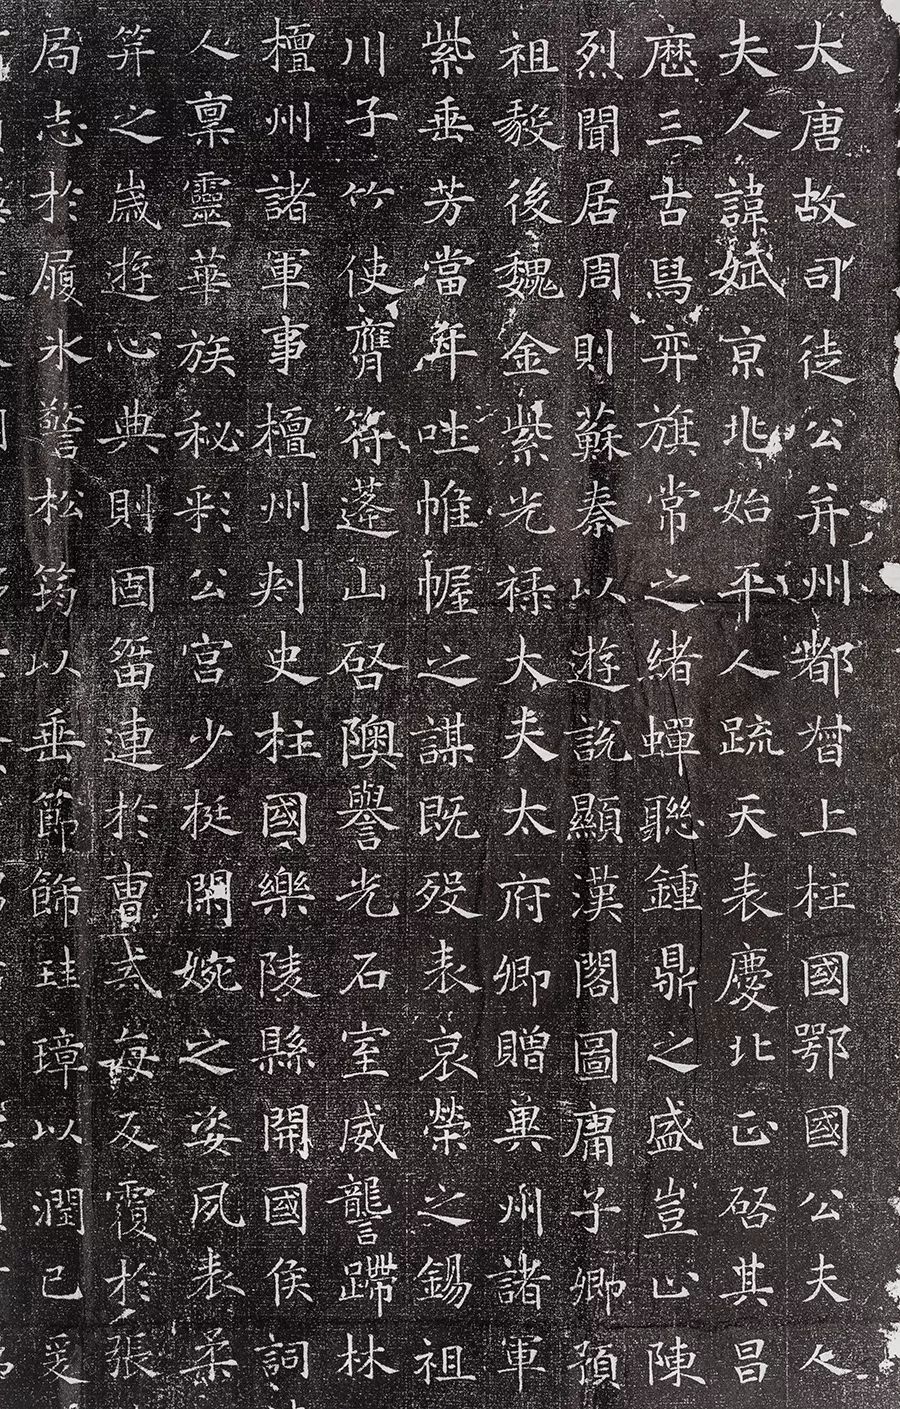 大唐故司徒公并州都督上柱國鄂國公夫人
夫人諱娬京兆始平人疏天表慶北正啓其昌
歷三古舄弈旗常之緒蟬聯鍾鼎之盛豈止陳
烈聞居周則蘇秦以遊說顯漢閣圖庸子卿預
祖毅後魏金紫光祿大夫太府卿贈兾州諸軍
紫垂芳當年吐帷幄之謀既歿表哀榮之錫祖
川子竹使膺符蓬山啓隩譽光石室威讋蹛林
檀州諸軍事檀州刾史柱國樂陵縣開國侯詞
人禀靈華族秘彩公宮少挺閑婉之姿夙表柔
笄之歲遊心典則固留連於曹弍每反覆於張
局志於履冰警松筠以垂節飾珪璋以潤己爰